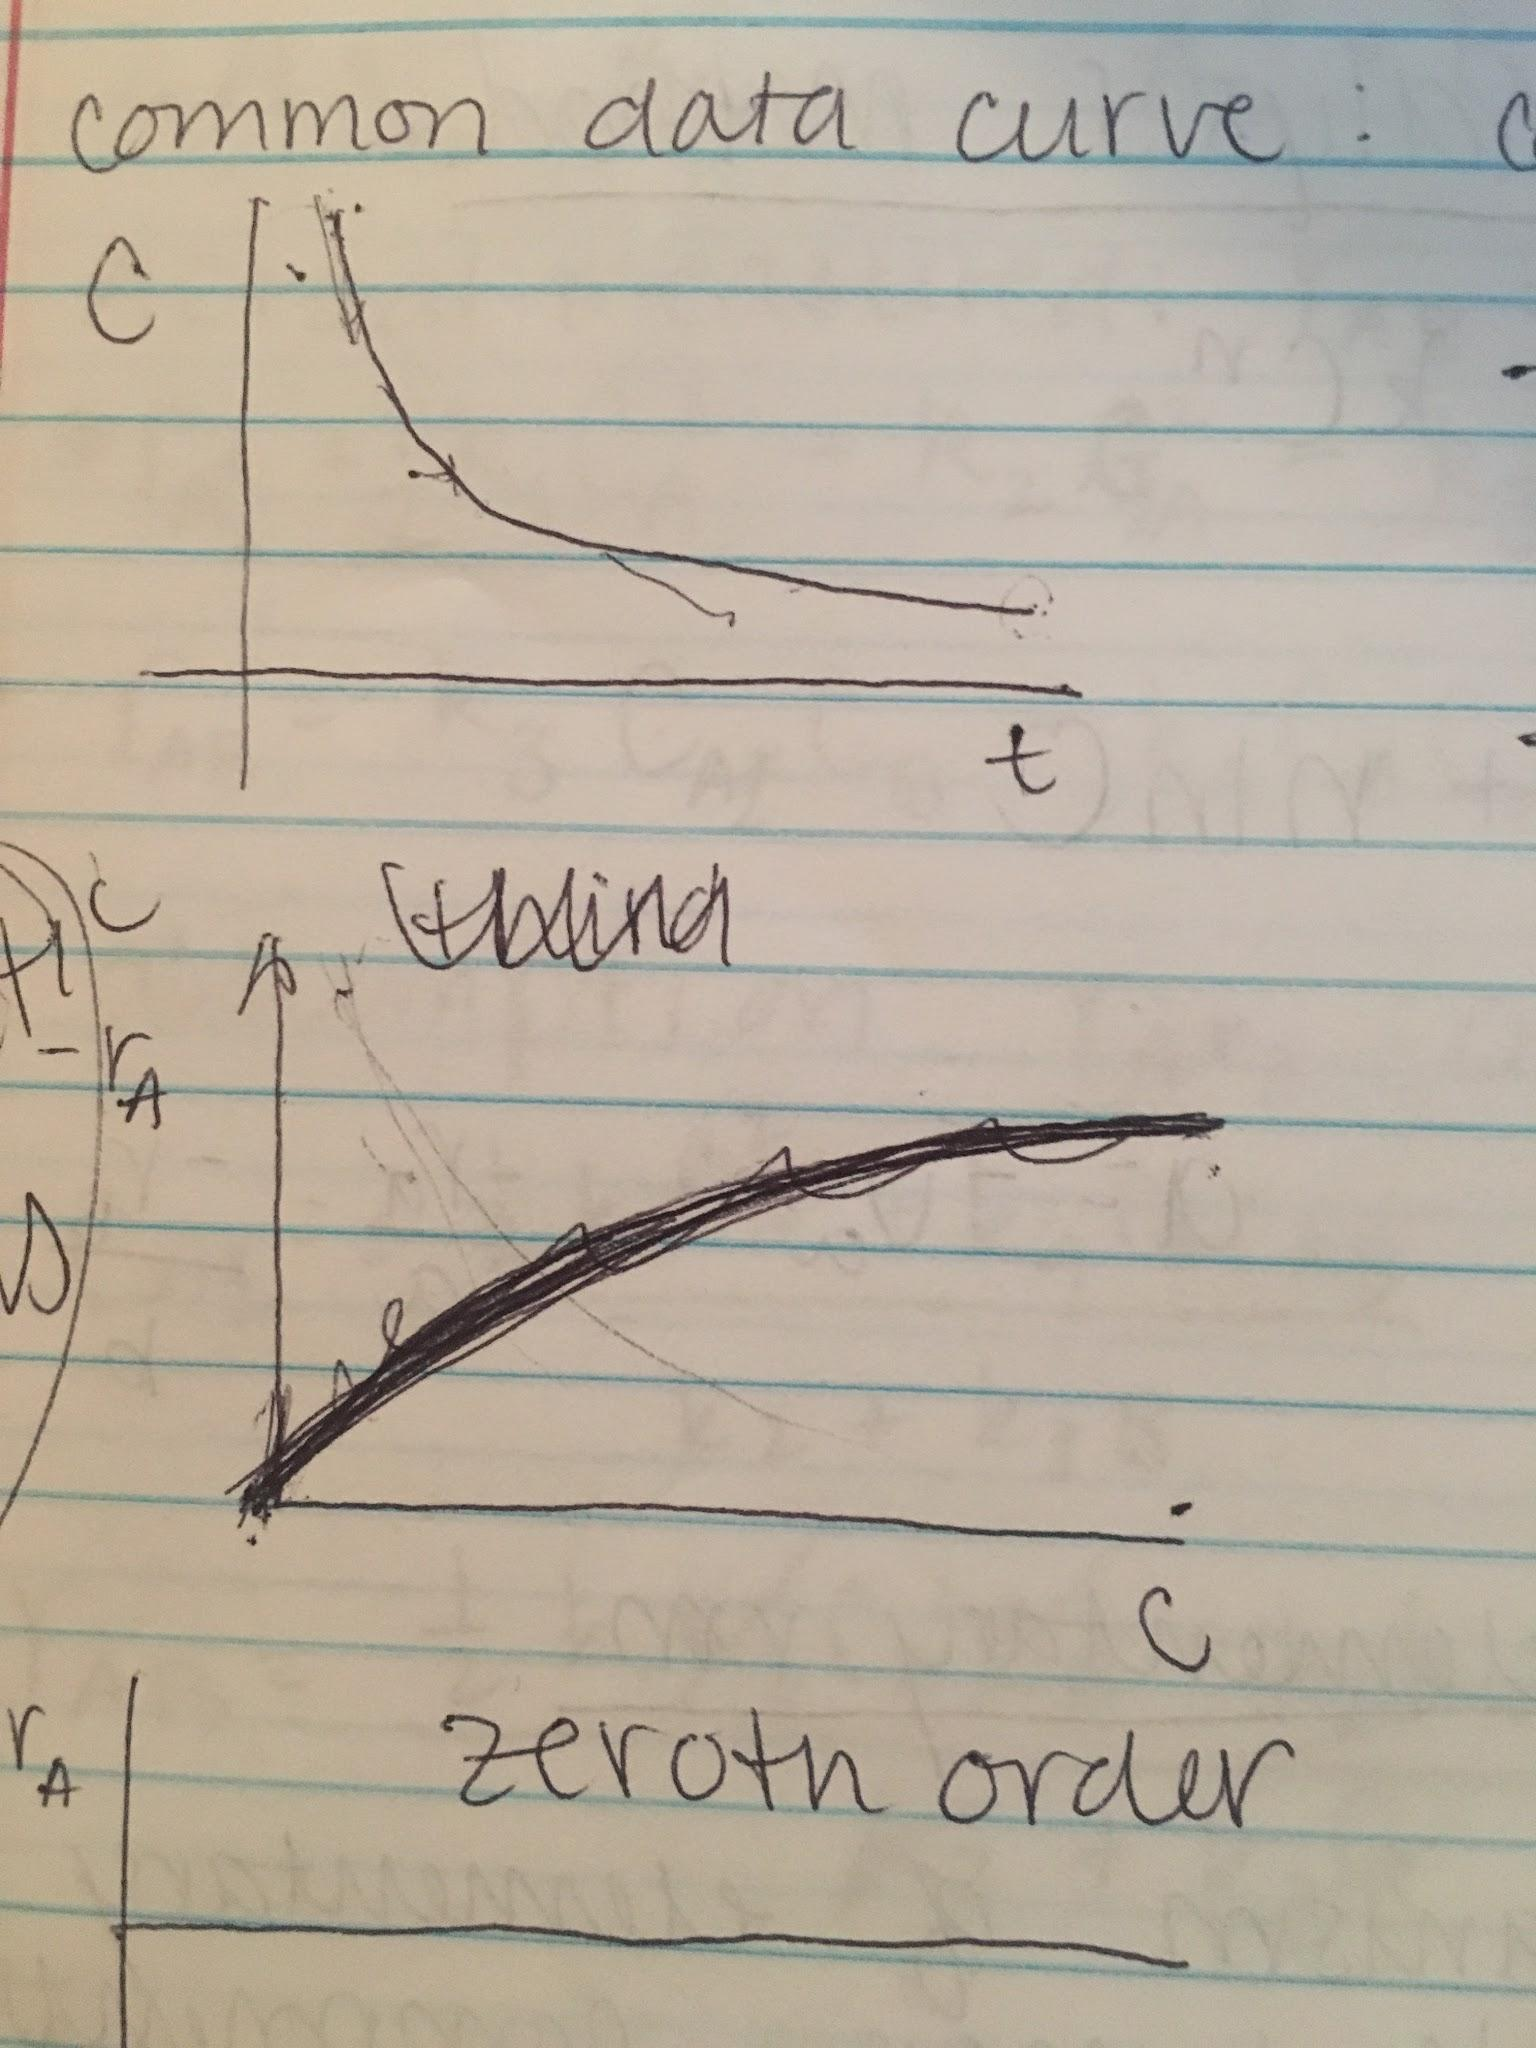 common data curve:
C
t
C
-rA
C
rA
zeroth order